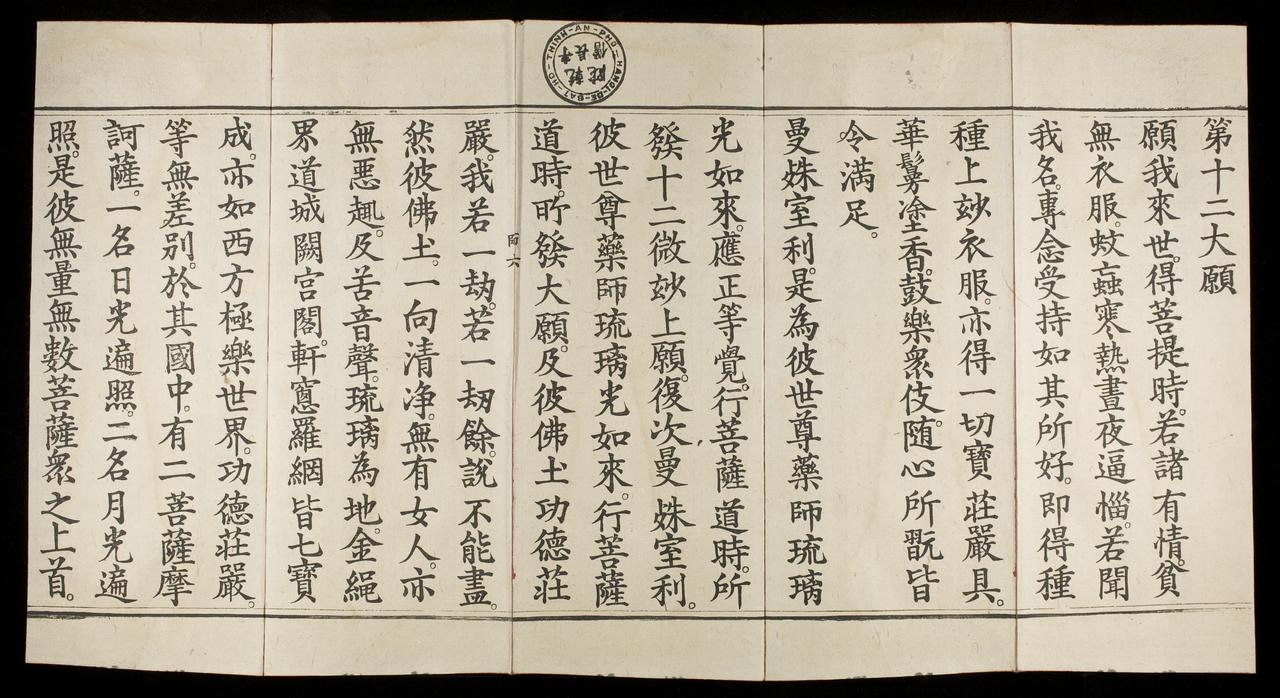 第十二大願
願我來世。得菩提時。若諸有情。貧
無衣服。蚊䖟寒熱晝夜逼惱。若聞
我名。專念受持如其所好。即得種
種上玅衣服。亦得一切寶莊嚴具。
華鬘塗香。鼓樂衆伎。随心所翫皆
令滿足。
曼姝室利。是為彼世尊藥師琉璃
光如來。應正等覺。行菩薩道時。所
發十二微玅上願。復次曼姝室利。
彼世尊藥師琉璃光如來。行菩薩
道時。所發大願。及彼佛土功德莊
師六
嚴。我若一劫。若一劫餘。說不能盡。
然彼佛土。一向清净。無有女人。亦
無悪趣。及苦音聲。琉璃為地。金繩
界道城闕宮閣。軒窓羅網皆七寶
成。亦如西方極樂世界。功德莊嚴。
等無差别。於其國中。有二菩薩摩
訶薩。一名日光遍照。二名月光遍
照。是彼無量無數菩薩衆之上首。
HO-THINH-AN-PHO=HANOI-DE-ĐAI